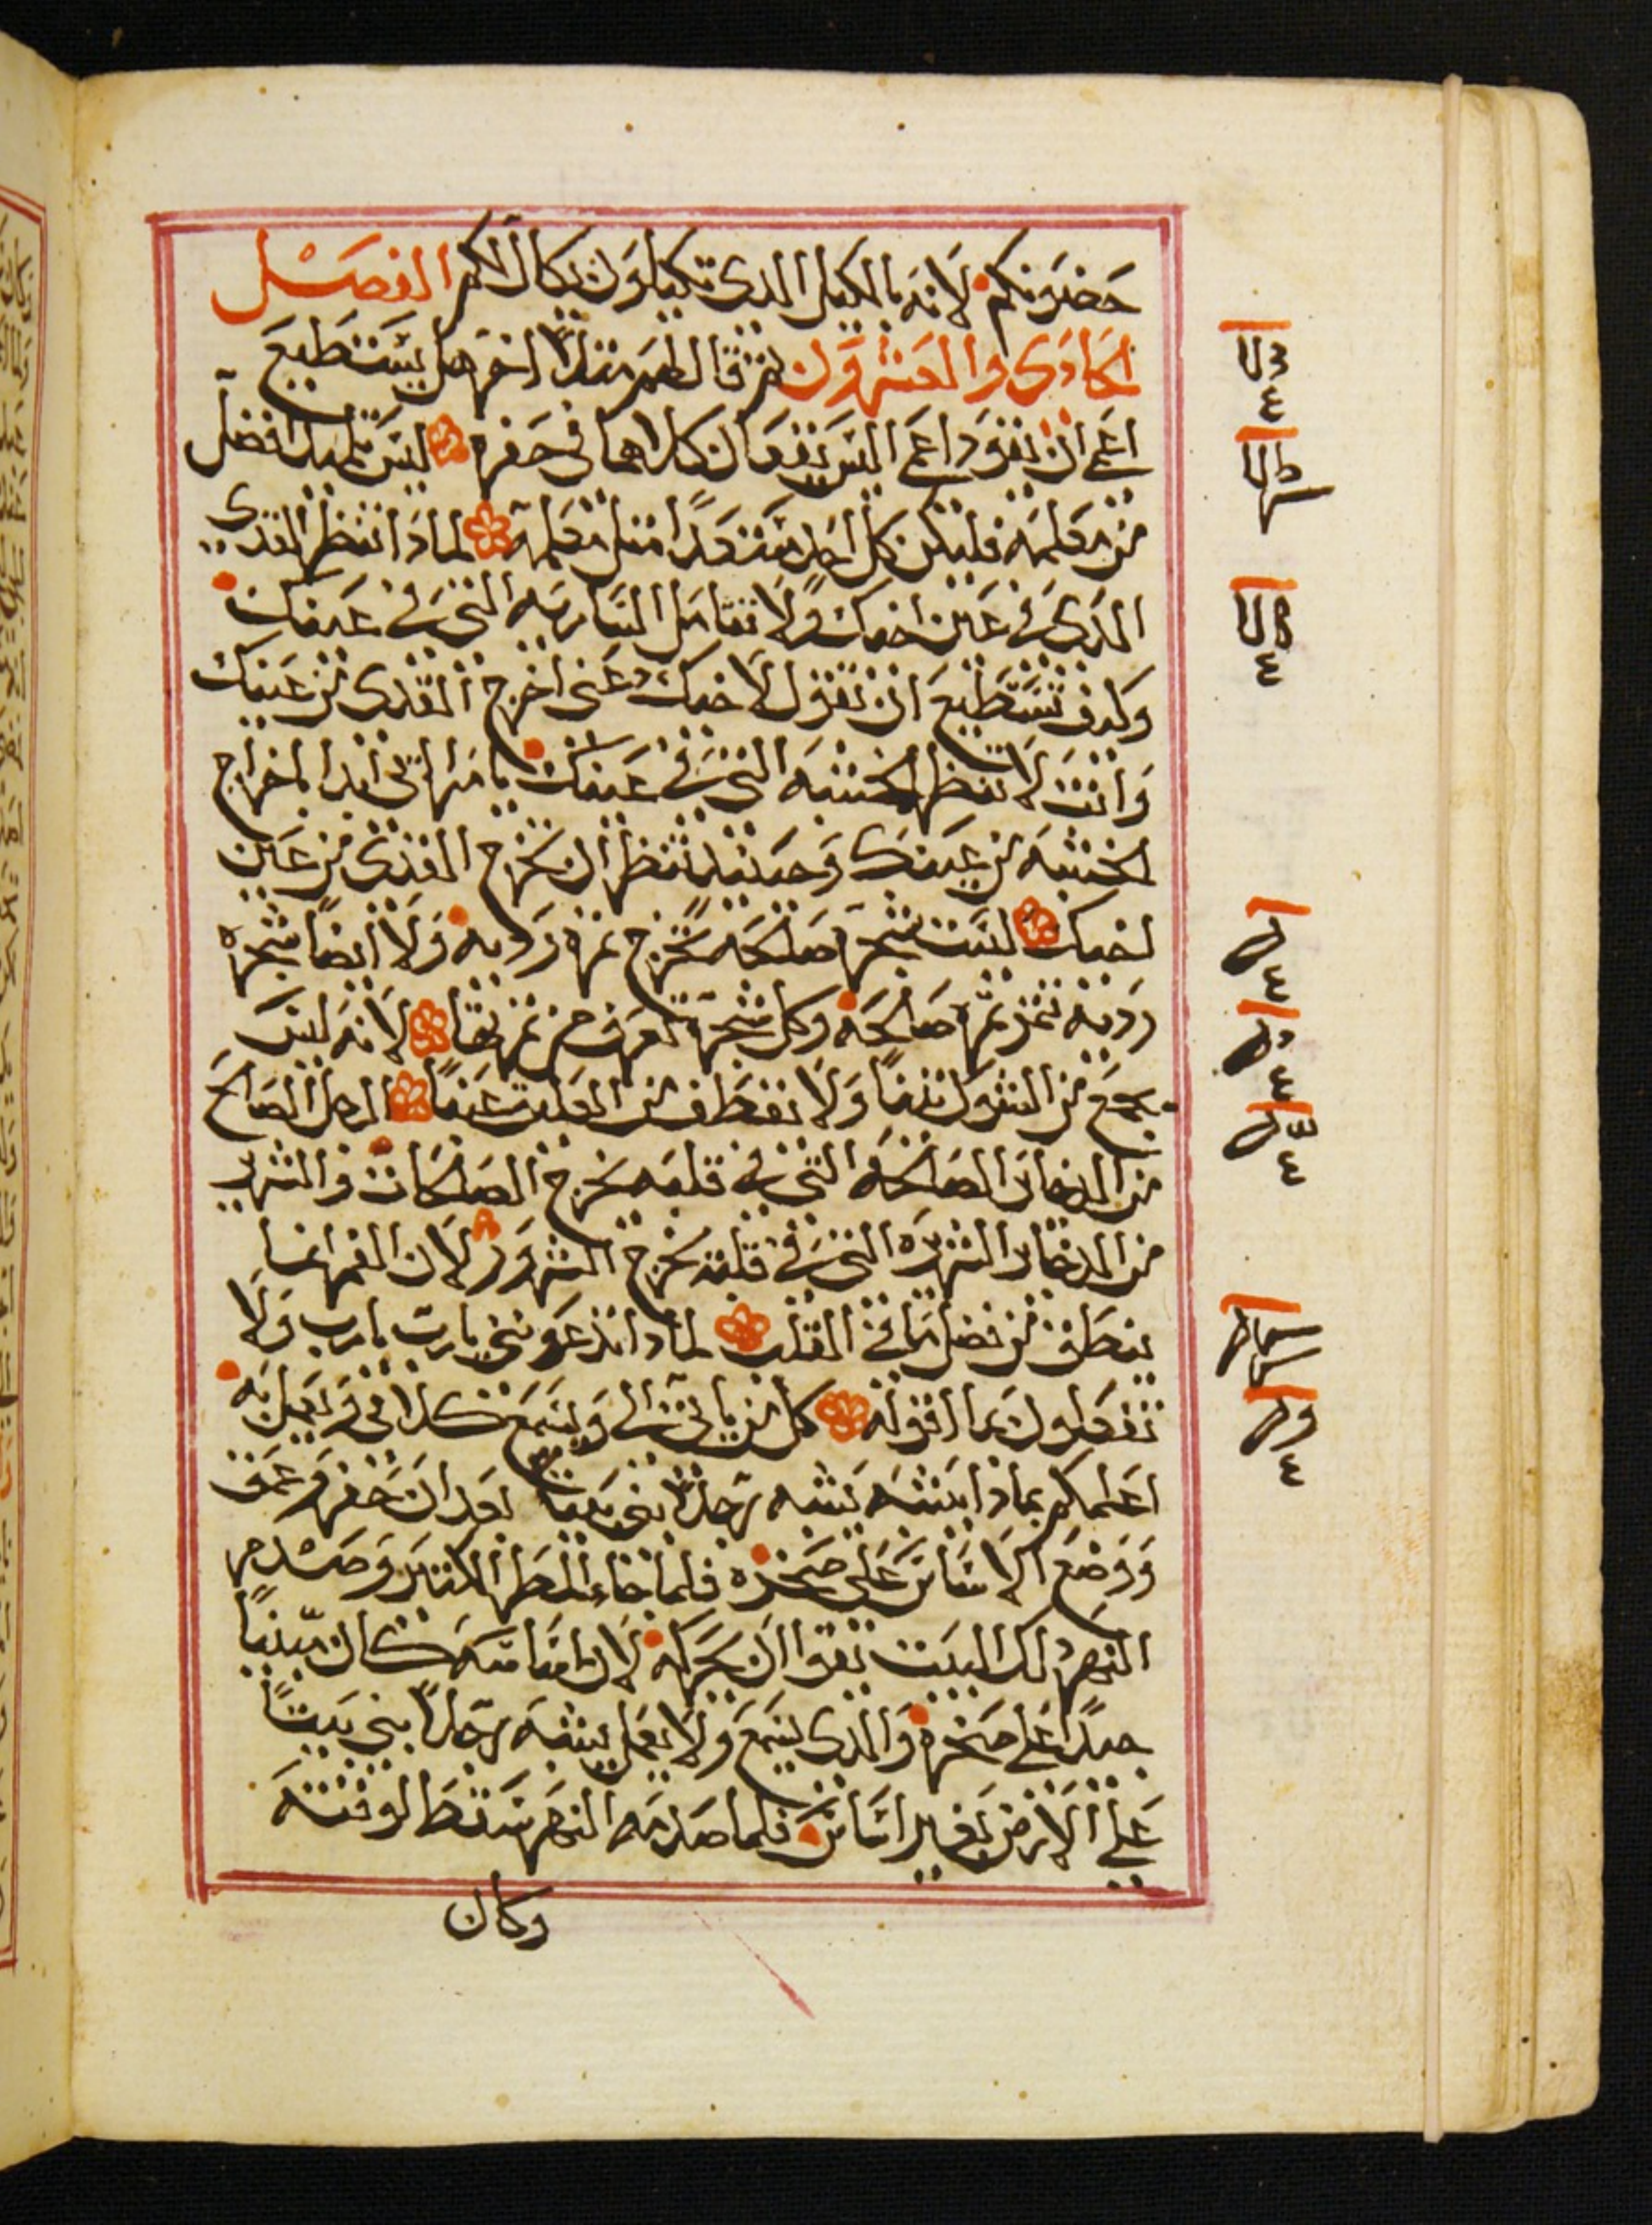 حضونكم لانه بالكيل الدى تكيلون يكال لكم الفصل
الحادى والعشرون ثم قال لهم مثلاً اخر هل يستطيع
اعمى ان يقود اعمى اليس يقعان كلاهما فى حفره ليس تلميد افضل
من معلمه فليكن كل احد مستعداً مثل معلمه لمادا تنظر القدى
الدى فى عين اخيك ولا تتامل الساريه التى فى عينك
وكيف تستطيع ان تقول لاخيك دعنى اخرج القدى من عينك
وانت لا تنظر الخشبه التى فى عينك يا مراائى ابدا باخراج
الخشبه من عينك وحينئد تنظر ان تخرج القدى من عين
اخيك ليست شجره صالحه تخرج ثمره رديه ولا ايضاً شجره
رديه تثمر ثمره صالحه وكل شجره تعرف من ثمرتها لانه ليس
يجمع من الشوك تيناً ولا يقطف من العليق عنباً الرجل الصالح
من الدخاير الصالحه التى فى قلبه يخرج الصالحات والشرير
من الدخاير الشريره التى فى قلبه يخرج الشرور لان الفم انما
ينطق من فضل ما فى القلب لمادا تدعوننى يارب يارب ولا
تفعلون بما اقوله كل من ياتى الى ويسمع كلامى ويعمل به
اعلمكم بمادا يشبه يشبه رجلاً بنى بيتاً بعد ان حفر وعمق
ووضع الاساس على صخره فلما جاء المطر الكتير وصدم
النهر دلك البيت يقوا ان يحركه لان اساسه كان مبنياً
جيداً على صخره والدى يسمع ولا يعمل يشبه رجلاً بنى بيتاً
على الارض بغير اساس فلما صدمه النهر سقط لوقته
وكان